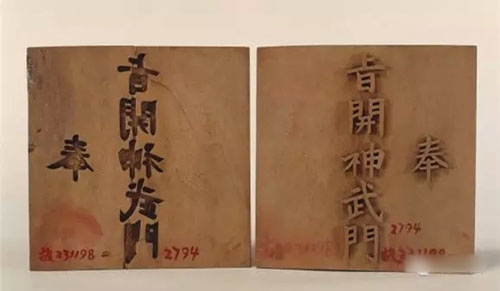 奉
旨開神武門
故231198-
2794
奉
旨開神武門
2794